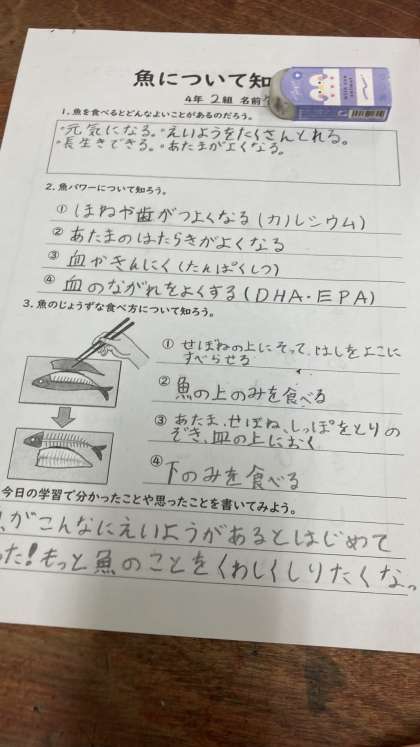 魚について知
4年 2組 名前
1. 魚を食べるとどんなよいことがあるのだろう。
・元気になる。・えいようをたくさんとれる。
・長生きできる。・あたまがよくなる。
2. 魚パワーについて知ろう。
① ほねや歯がつよくなる(カルシウム)
② あたまのはたらきがよくなる
③ 血やきんにく(たんぱくしつ)
④ 血のながれをよくする(DHA・EPA)
3. 魚のじょうずな食べ方について知ろう。
① せぼねの上にそって、はしをよこに
すべらせる
② 魚の上のみを食べる
③ あたま、せぼね、しっぽをとりの
ぞき、皿の上におく
④ 下のみを食べる
今日の学習で分かったことや思ったことを書いてみよう。
がこんなにえいようがあるとはじめて
った!もっと魚のことをくわしくしりたくなっ